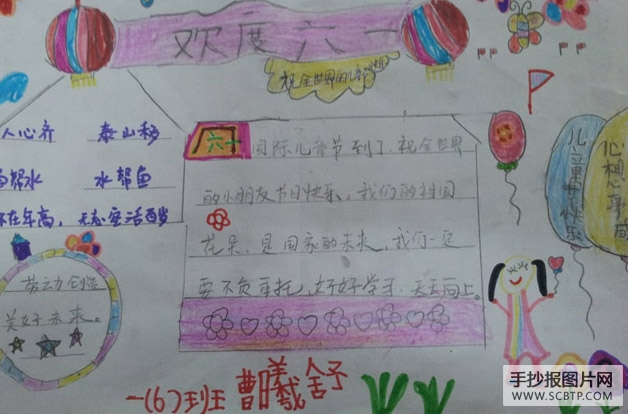 欢度六一
祝全世界的
人心齐 泰山移
鱼帮水 水帮鱼
不在年高，无志空活百岁
六一国际儿童节到了，祝全世界
的小朋友节日快乐，我们的祖国
花朵，是国家的未来，我们一定
要不负重托，好好学习，天天向上。
儿童节快乐
心想事成
劳动创造
美好未来。
一(6)班 曹曦舒予
手抄报图片网
WWW.SCBTP.COM